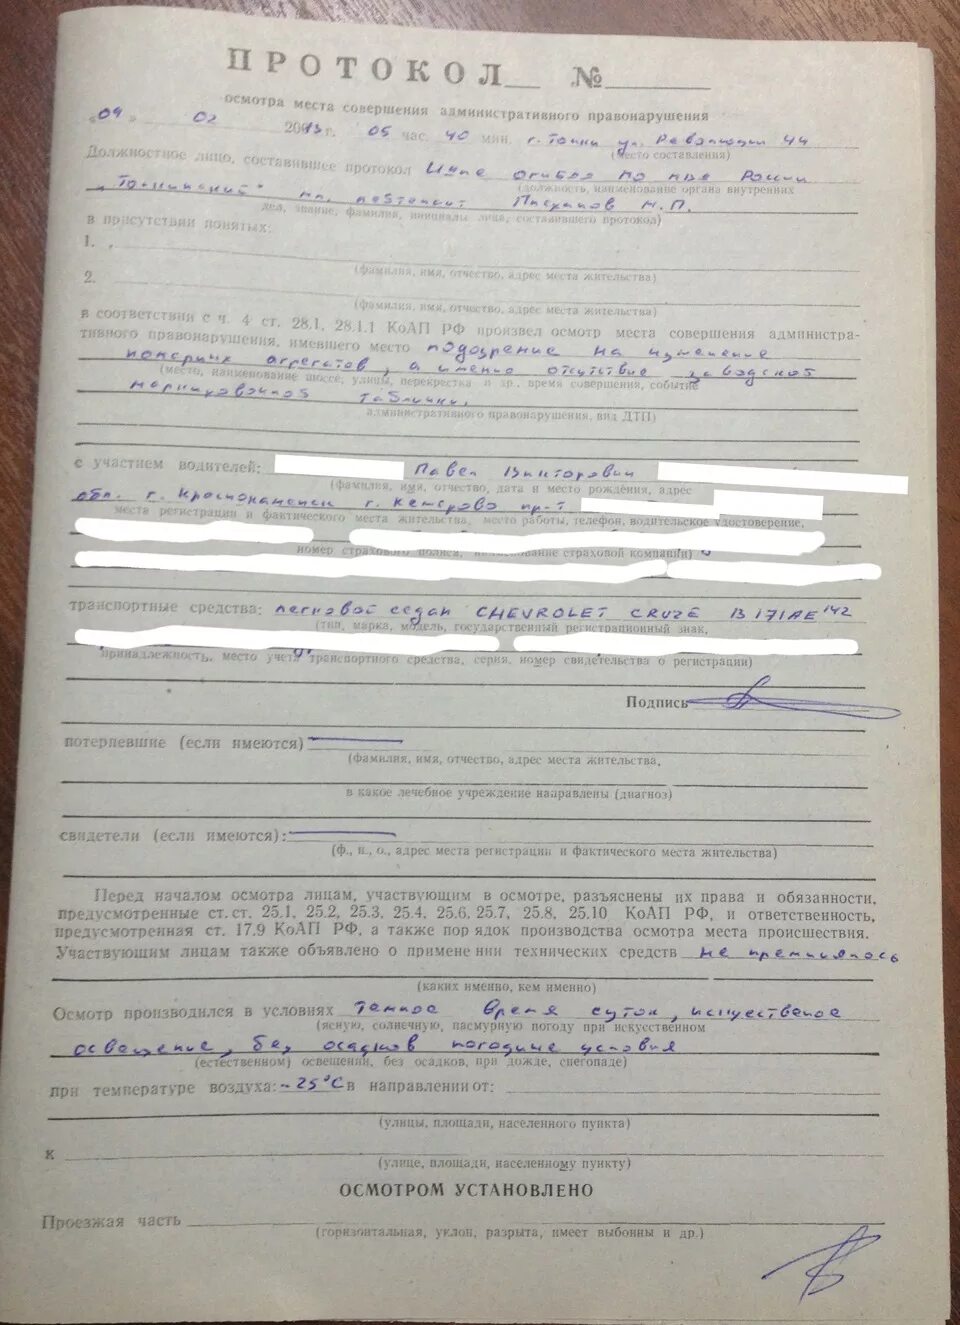 ПРОТОКОЛ №
осмотра места совершения административного правонарушения
«09» 02 2013 г. 05 час. 40 мин. г. Топки ул. Революции 44
(место составления)
Должностное лицо, составившее протокол ОГИБДД МО МВД России
(должность, наименование органа внутренних
"Топкинский" лейтенант М.П.
дел, звание, фамилия, инициалы лица, составившего протокол)
в присутствии понятых:
1.
(фамилия, имя, отчество, адрес места жительства)
2.
(фамилия, имя, отчество, адрес места жительства)
в соответствии с ч. 4 ст. 28.1, 28.1.1 КоАП РФ произвел осмотр места совершения администра-
тивного правонарушения, имевшего место подозрение на изменение
номерных агрегатов, а именно отсутствие заводской
(место, наименование шоссе, улицы, перекрестка и др. время совершения, событие
маркировочной таблички.
административного правонарушения, вид ДТП)
с участием водителей: Павел Викторович
(фамилия, имя, отчество, дата и место рождения, адрес
обл. г. г. Кемерово пр-т
места регистрации и фактического места жительства, место работы, телефон, водительское удостоверение,
номер страхового полиса, наименование страховой компании)
транспортные средства: легковой седан CHEVROLET CRUZE В 171 АЕ 142
(тип, марка, модель, государственный регистрационный знак,
принадлежность, место учета транспортного средства, серия, номер свидетельства о регистрации)
Подпись
потерпевшие (если имеются)
(фамилия, имя, отчество, адрес места жительства,
в какое лечебное учреждение направлены (диагноз)
свидетели (если имеются):
(ф., и., о., адрес места регистрации и фактического места жительства)
Перед началом осмотра лицам, участвующим в осмотре, разъяснены их права и обязанности,
предусмотренные ст.ст. 25.1, 25.2, 25.3, 25.4, 25.6, 25.7, 25.8, 25.10 КоАП РФ, и ответственность,
предусмотренная ст. 17.9 КоАП РФ, а также порядок производства осмотра места происшествия.
Участвующим лицам также объявлено о применении технических средств не применялось
(каких именно, кем именно)
Осмотр производился в условиях темное время суток, искуственое
(ясную, солнечную, пасмурную погоду при искусственном
освещение, без осадков погодные условия
(естественном) освещении, без осадков, при дожде, снегопаде)
при температуре воздуха: -25°C в направлении от:
(улицы, площади, населенного пункта)
к
(улице, площади, населенному пункту)
ОСМОТРОМ УСТАНОВЛЕНО
Проезжая часть
(горизонтальная, уклон, разрыта, имеет выбоины и др.)